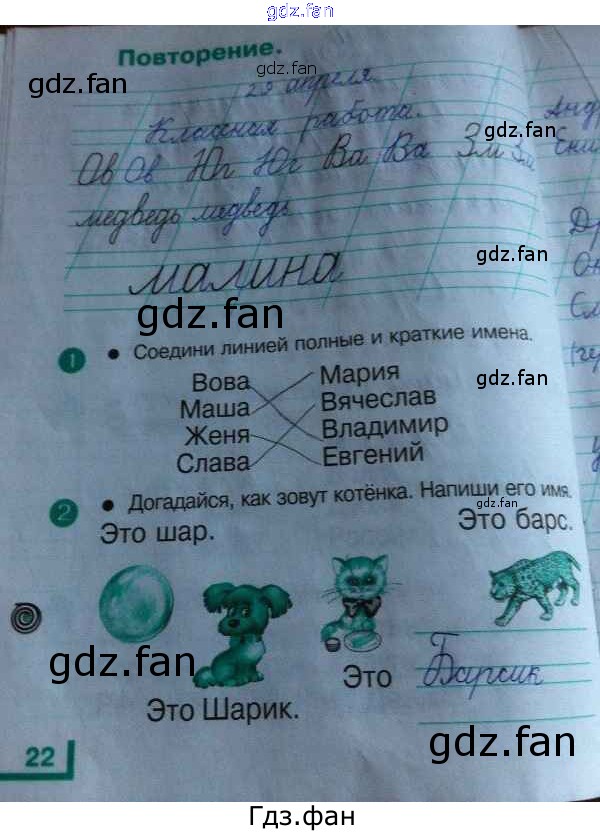 gdz.fan
Повторение.
gdz.fan
gdz.fan
29 апреля.
Классная работа.
Анд
gdz.fan
Ов Ов Юг Юг Ва Ва Зм Зм
медведь медведь
gdz.fan
малина
gdz.fan
1 • Соедини линией полные и краткие имена.
Вова Мария
gdz.fan
Маша Вячеслав
Женя Владимир
Слава Евгений
2 • Догадайся, как зовут котёнка. Напиши его имя.
Это шар. Это барс.
gdz.fan
gdz.fan
Это Барсик
Это Шарик.
gdz.fan
22
Гдз.фан